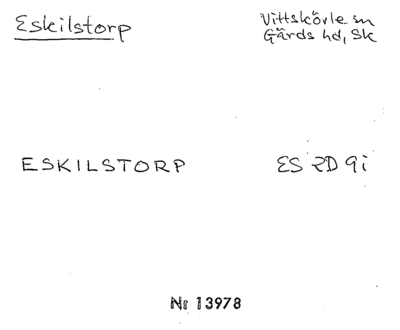 Eskilstorp
Vittskövle sn
Gärds hd, Sk
ESKILSTORP
ES 2D 9i
Nr 13978